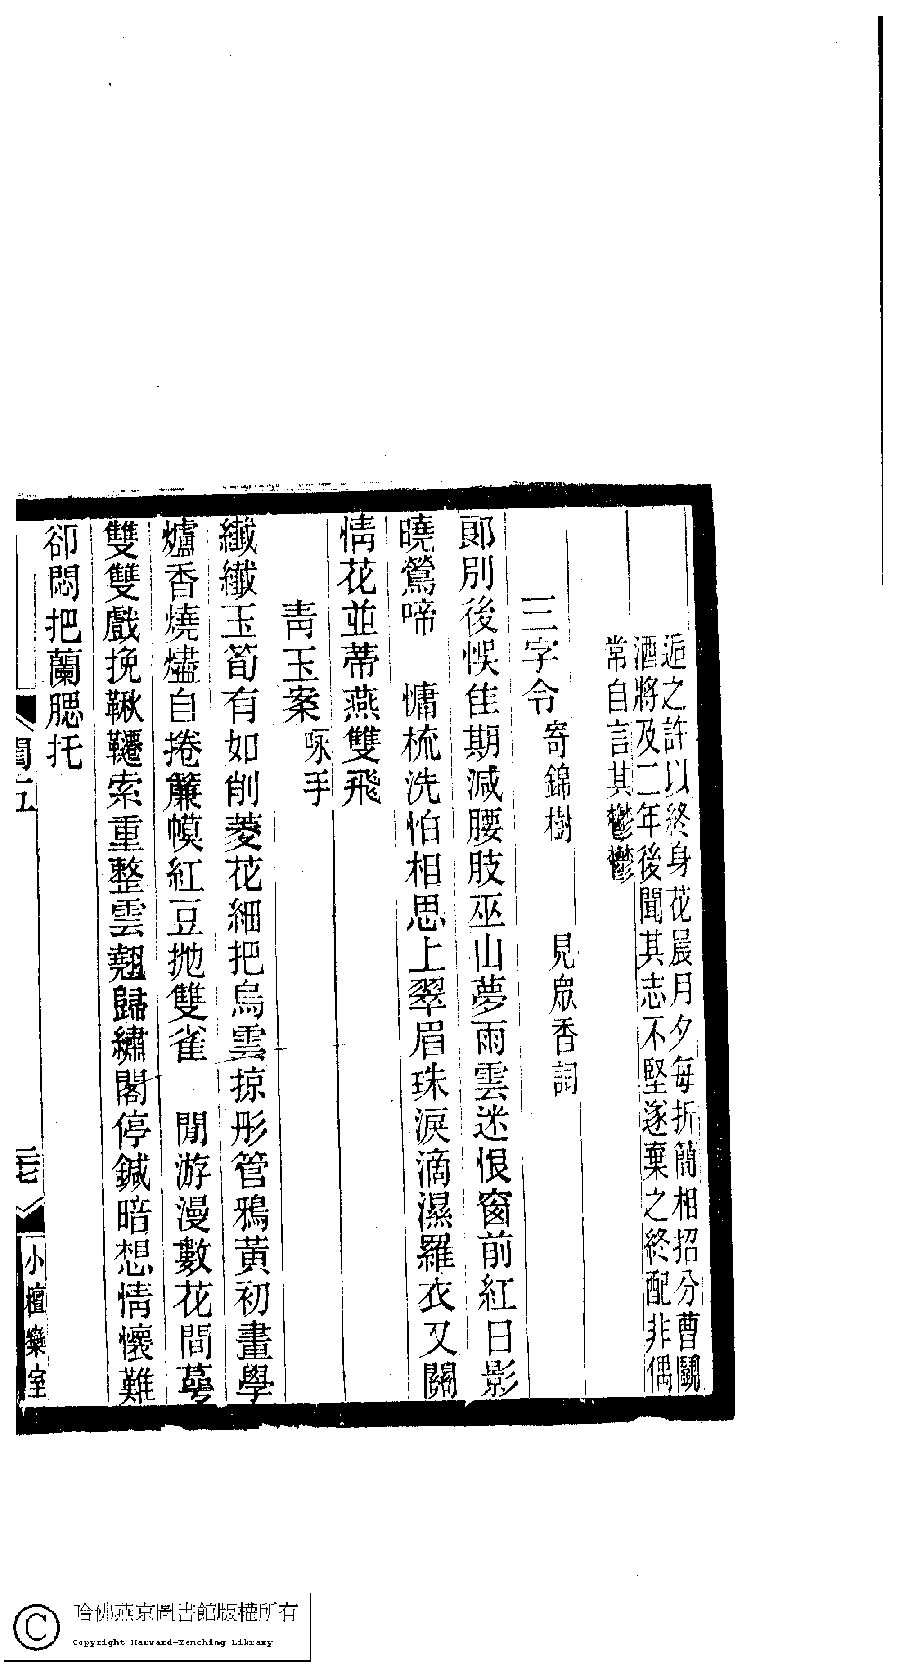 逅之許以終身花晨月夕每折簡相招分曹鬭
酒將及二年後聞其志不堅遂棄之終配非偶
常自言其鬱鬱
三字令 寄錦樹 見眾香詞
郞別後悞佳期減腰肢巫山夢雨雲迷恨窗前紅日影
曉鶯啼 慵梳洗怕相思上翠眉珠淚滴濕羅衣又關
情花並蒂燕雙飛
靑玉案 咏手
纖纖玉筍有如削菱花細把烏雲掠彤管鴉黃初畫學
爐香燒燼自捲簾幙紅豆拋雙雀 閒游漫數花間萼
雙雙戲挽鞦韆索重整雲翹歸繡閣停鍼暗想情懷難
卻悶把蘭腮托
閨五
小檀欒室
哈佛燕京圖書館版權所有
Copyright Harvard-Yenching Library